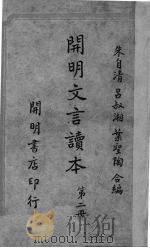 朱自清 呂叔湘 葉聖陶 合編
開明文言讀本
第二冊
開明書店印行
mtoou.info